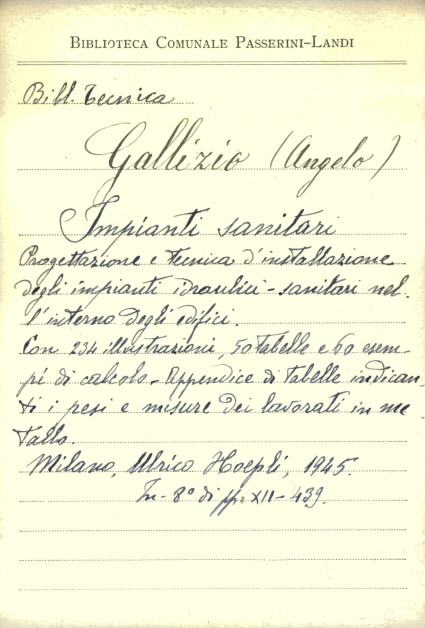 BIBLIOTECA COMUNALE PASSERINI-LANDI
Bibl. Tecnica
Gallizio (Angelo)
Impianti sanitari
Progettazione e tecnica d'installazione
degli impianti idraulici-sanitari nel-
l'interno degli edifici.
Con 234 illustrazioni, 50 tabelle e 60 esem-
pi di calcolo - Appendice di tabelle indican-
ti i pesi e misure dei lavorati in me
tallo.
Milano, Ulrico Hoepli, 1945.
In-8° di pp. XII-439.